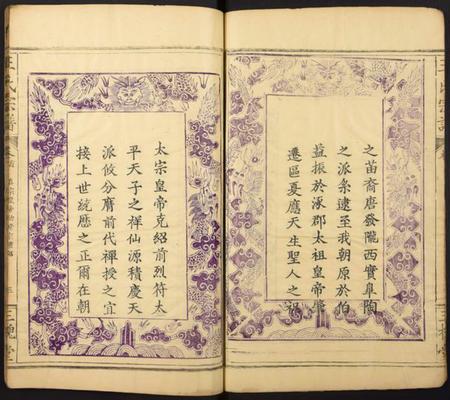 之苗裔唐發隴西實皐陶
之派条逮至我朝原於伯
益振於涿郡太祖皇帝
遷區夏應天生聖人之
太宗皇帝克紹前烈符太
平天子之祥仙源積慶天
派攸分膺前代禪授之宜
接上世統歷之正爾在朝
王氏宗譜
三槐堂